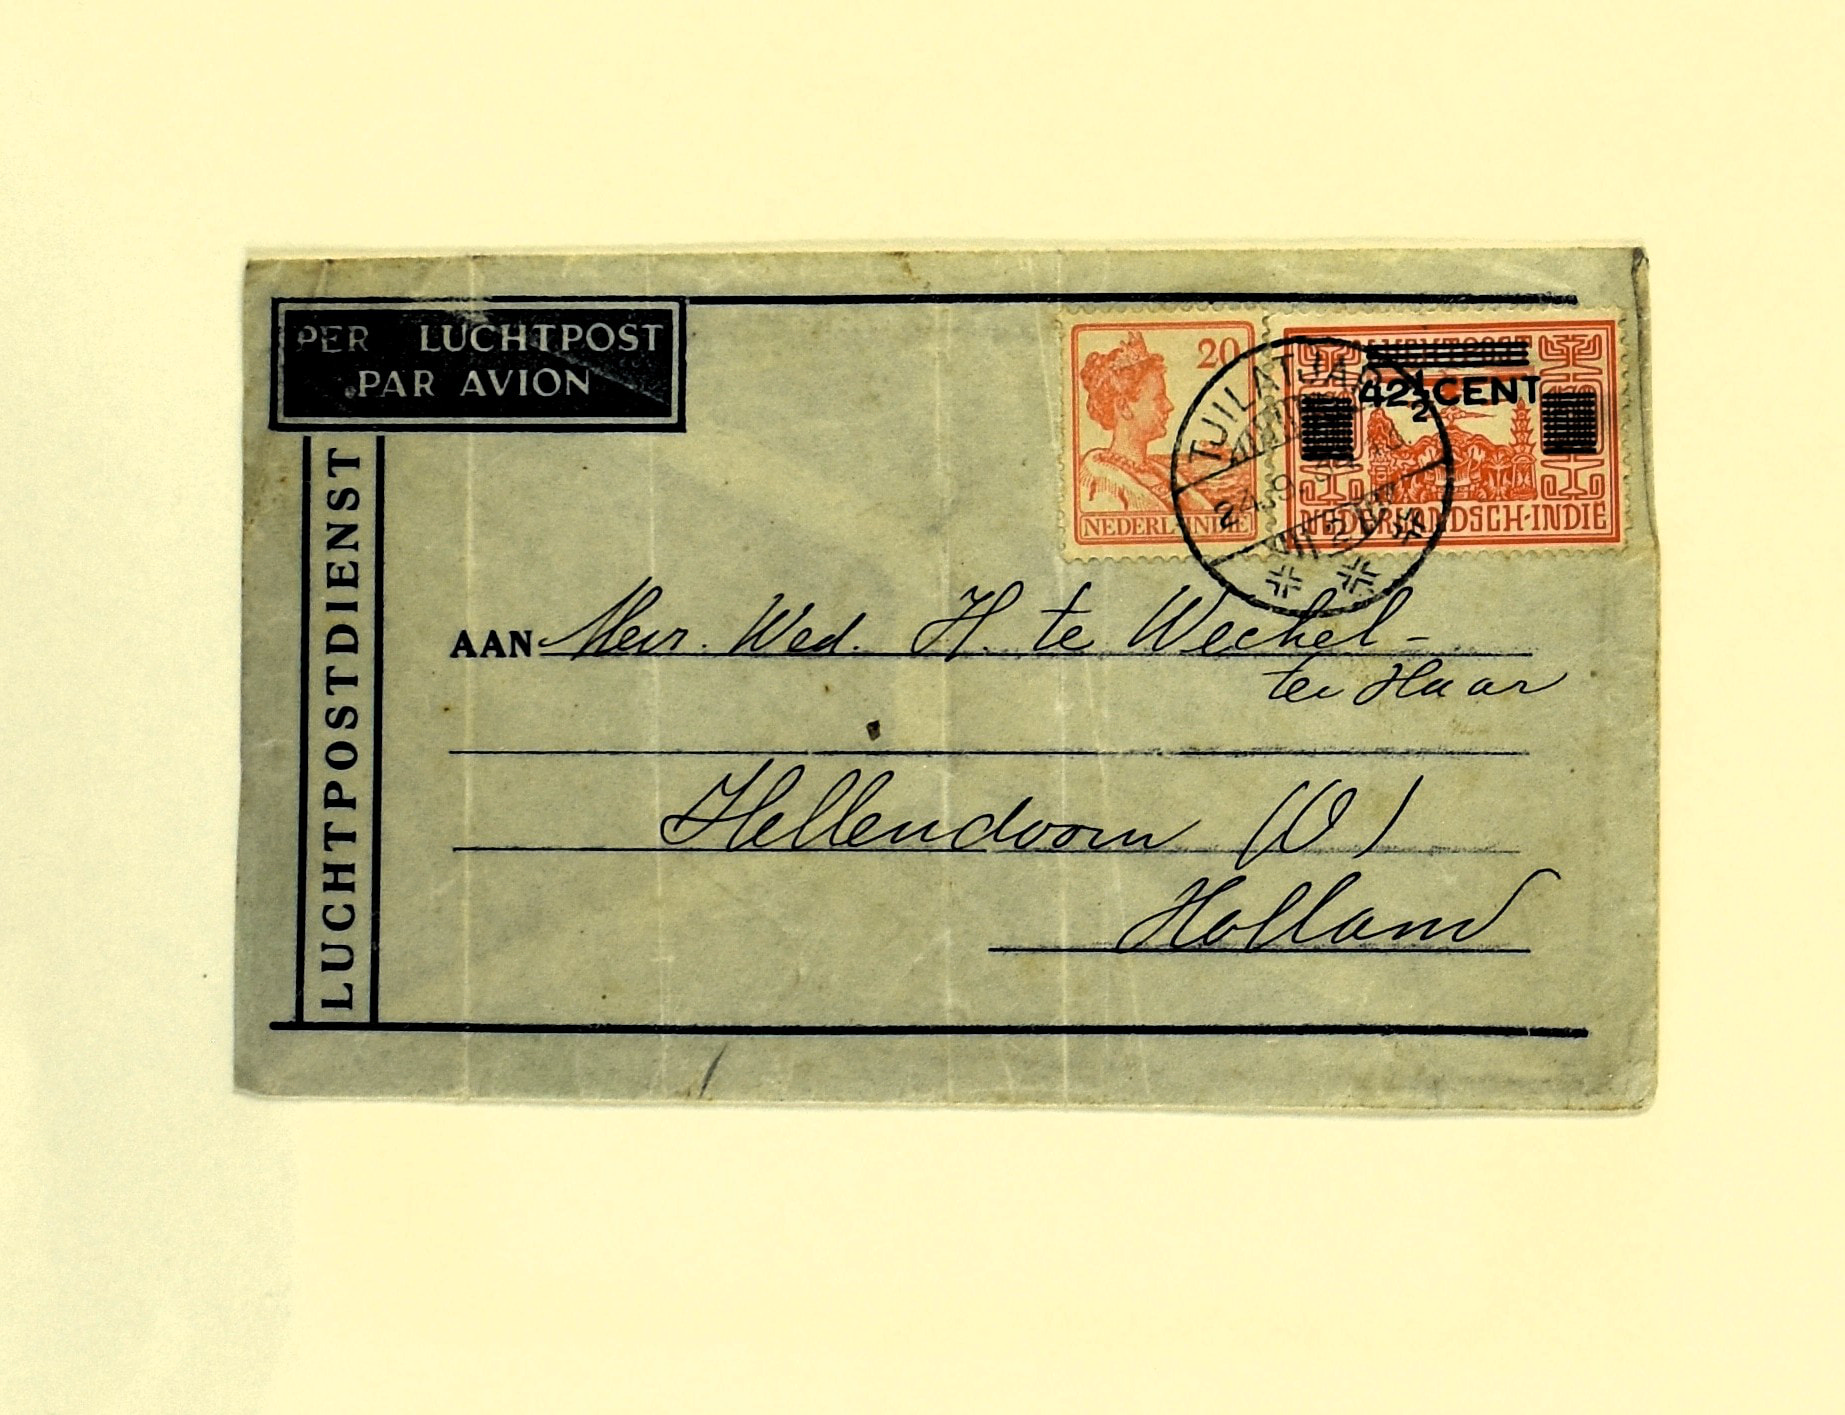 PER LUCHTPOST
PAR AVION
LUCHTPOSTDIENST
20
NEDERL. INDIE
42½ CENT
NEDERLANDSCH-INDIE
TJILATJAP
24.9.34
AAN Mevr. Wed. H. te Wechel-
ter Haar
Hellendoorn (O)
Holland